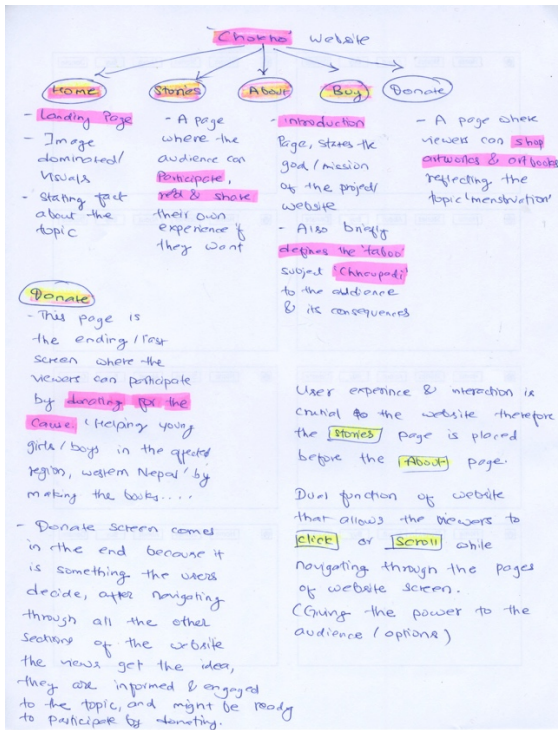 'Chokho' Website
Home Stories About Buy Donate
- Landing Page
- Image
dominated/
Visuals
- Stating fact
about the
topic
- A page
where the
audience can
Participate,
read & share
their own
experience if
they want
- introduction
Page, states the
goal/mission
of the project/
website
- Also briefly
defines the 'taboo'
subject 'Chhaupadi'
to the audience
& its consequences
- A page where
viewers can shop
artworks & artbooks
reflecting the
topic 'menstruation'
Donate
- This page is
the ending/last
screen where the
viewers can participate
by donating for the
cause. (Helping young
girls/boys in the affected
region, western Nepal' by
making the books....
- Donate screen comes
in the end because it
is something the users
decide, after navigating
through all the other
sections of the website
the views get the idea,
they are informed & engaged
to the topic, and might be ready
to participate by donating.
User experince & interaction is
crucial to the website therefore
the Stories page is placed
before the About page.
Dual function of website
that allows the viewers to
click or Scroll while
navigating through the pages
of website screen.
(Giving the power to the
audience / options)